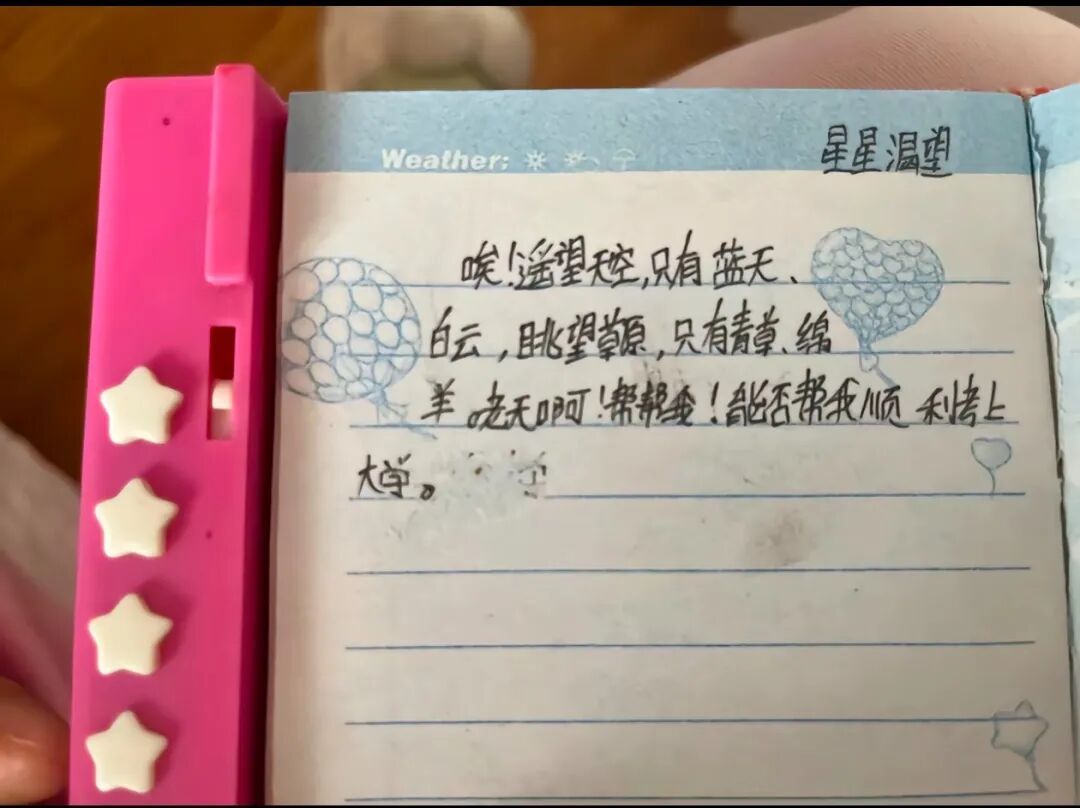 Weather:
星星温望
唉!遥望天空,只有蓝天、
白云,眺望草原,只有青草、绵
羊。老天啊!帮帮我!能否帮我顺利考上
大学。